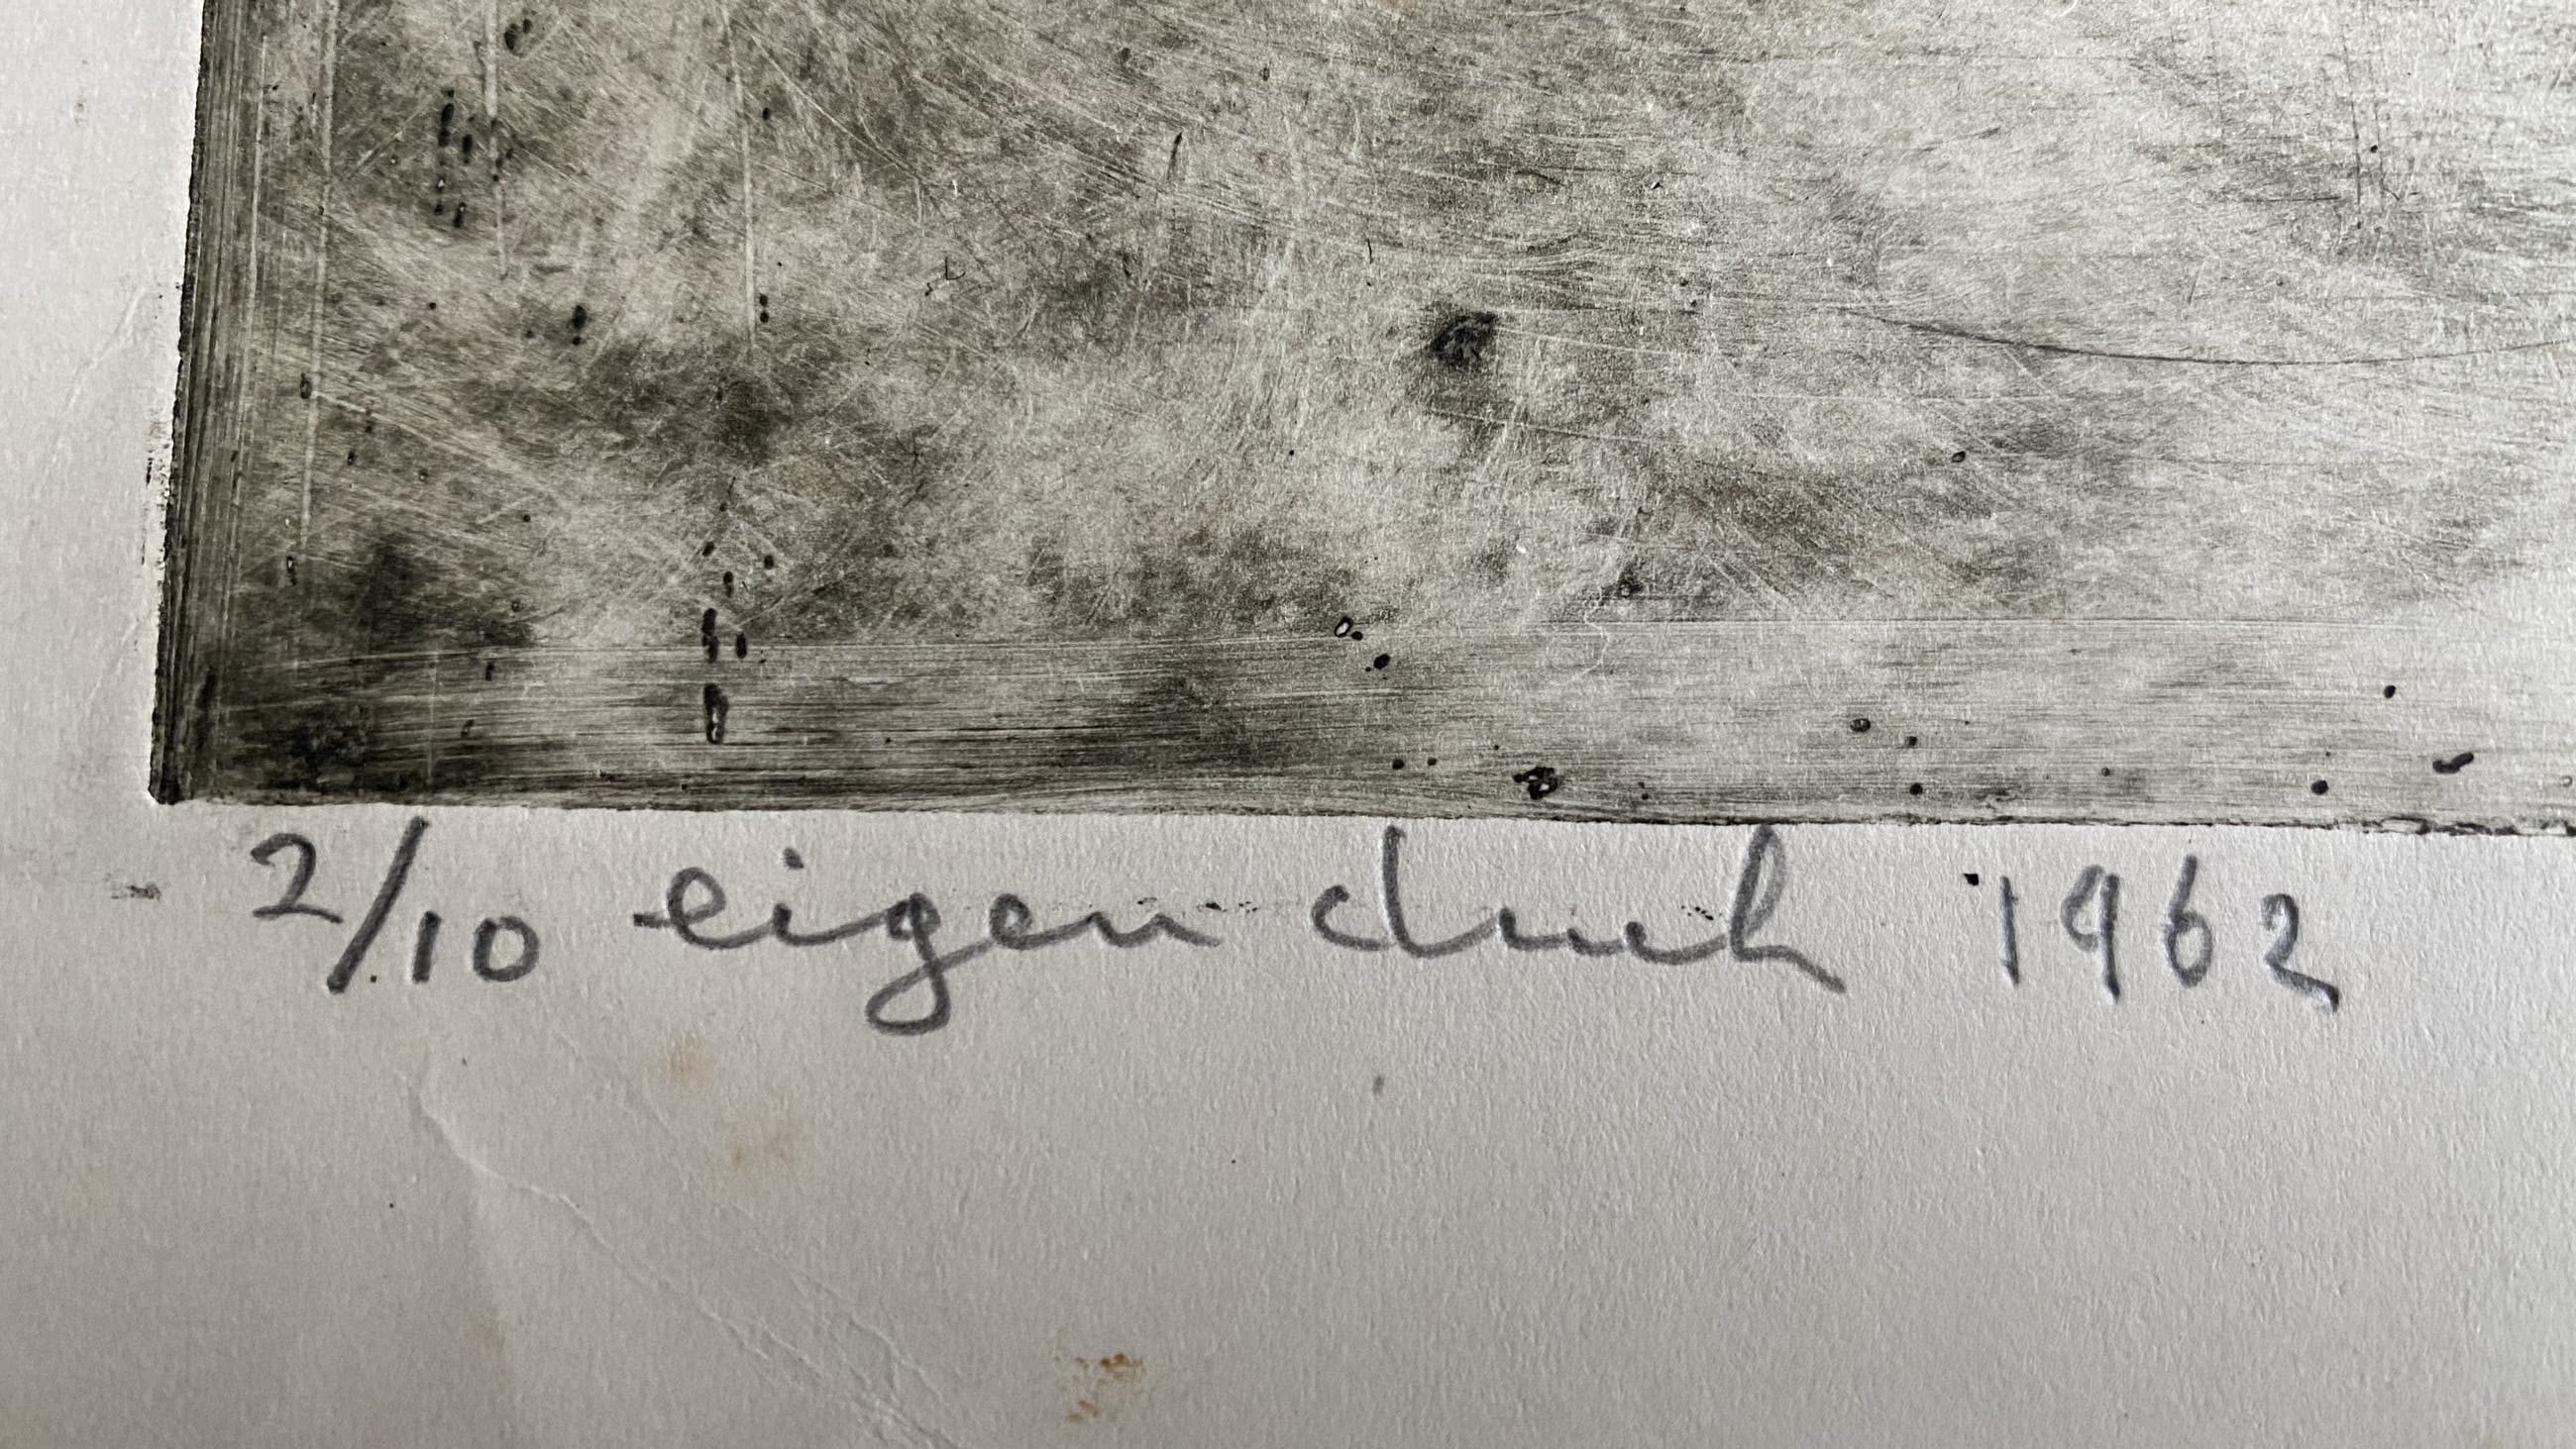 2/10 eigen druk 1962